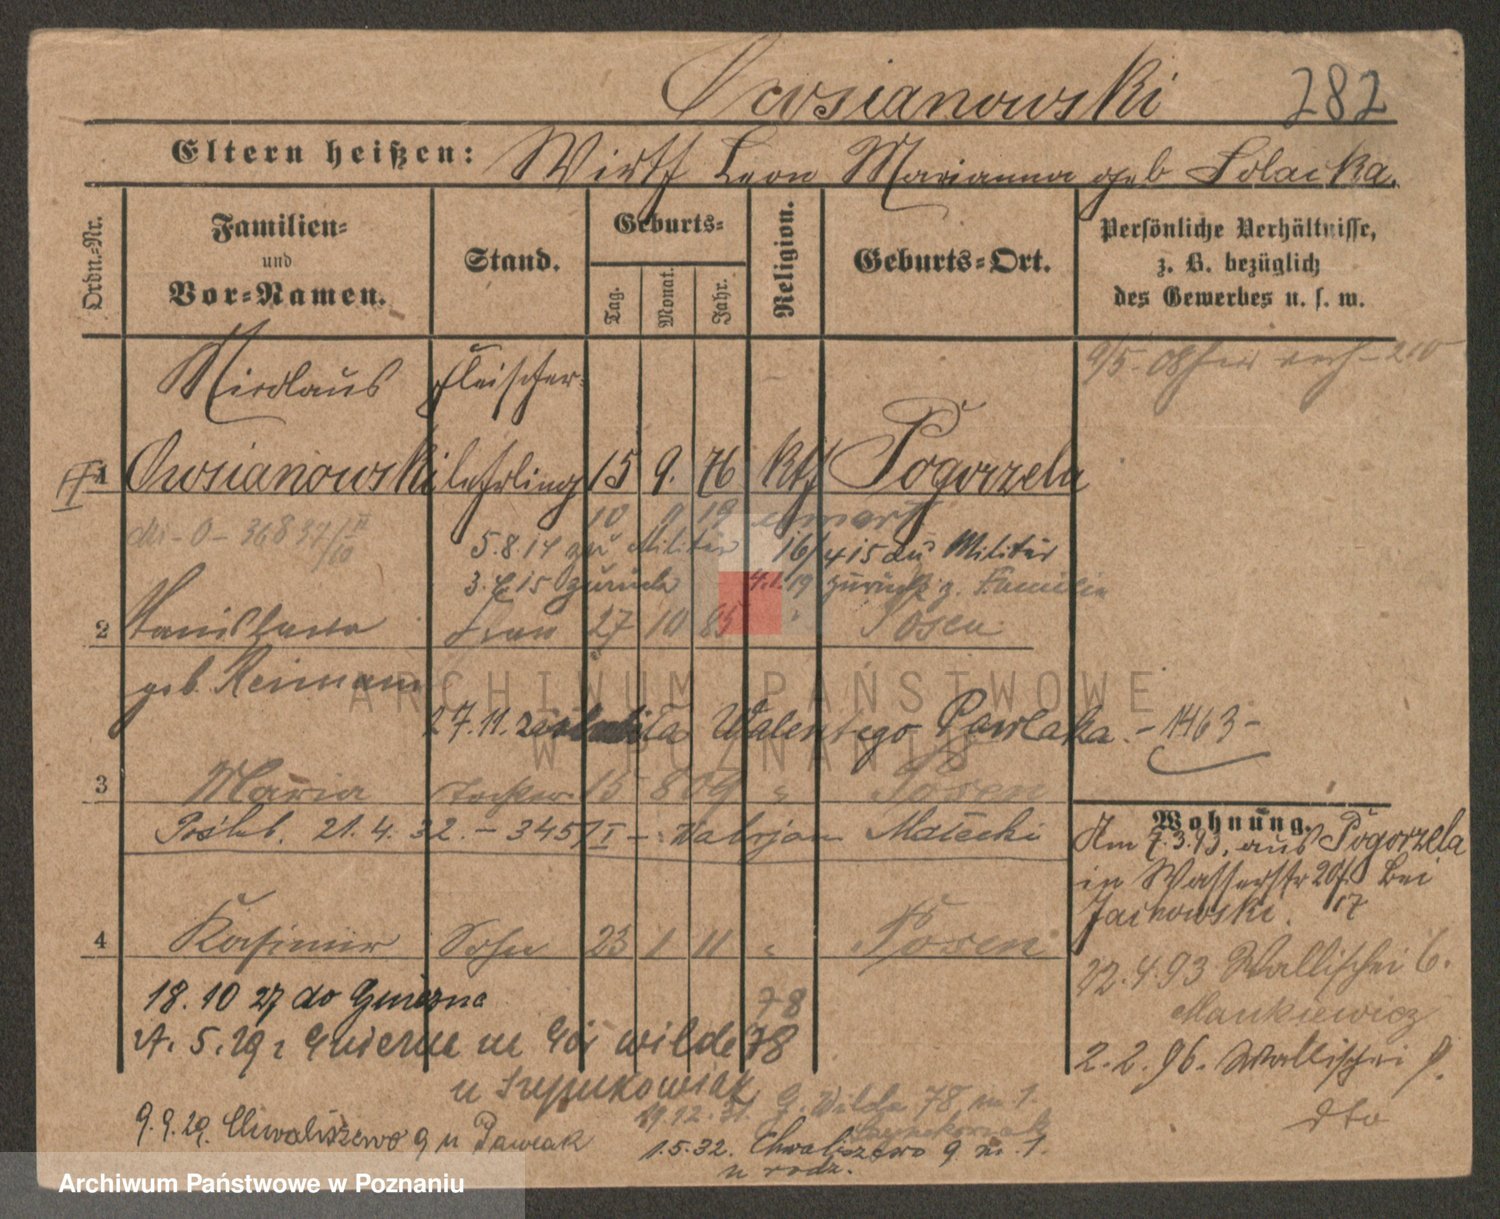 Owsianowski 282
Eltern heißen: Wirth Leon Marianna geb Solacka.
Ordn.-Nr.
Familien-
und
Vor-Namen.
Stand.
Geburts-
Tag.
Monat.
Jahr.
Religion.
Geburts-Ort.
Persönliche Verhältnisse,
z. B. bezüglich
des Gewerbes u. s. w.
9/5-08
Nicolaus Fleischer-
1 Owsianowski lehrling 15 9. 76 kth Pogorzela
10 19
5.8.14 zu Militär 16/4 15 zu Militär
3. 15 zurück 4.1.19 zurück z. Familie
2 Stanislawa Frau 27 10 85 " Posen
geb. Reimann
27.11. zaślubiła Walentego Pawlaka. -1463-
3 Maria Tochter 15 8 09 " Posen
Poślub. 21.4.32. - 3451 I - Walerjan Małecki
4 Kasimir Sohn 23 1 11 " Posen
18.10 27 do Gniezna
78
5.29 z Gniezna Gór wilda 78
u
9.9.29. Chwaliszewo 9 u Pawlak
29.12.31. G. Wilda 78 m 1.
1.5.32. Chwaliszewo 9 m. 1.
u rodz.
Wohnung.
Am 7.3.93, aus Pogorzela
in Wasserstr 20/I bei
Jachowski. 17
22.4.93 Wallischei 6.
Mankiewicz
2.2.96. Wallischei 9.
dto
ARCHIWUM PAŃSTWOWE
W POZNANIU
Archiwum Państwowe w Poznaniu